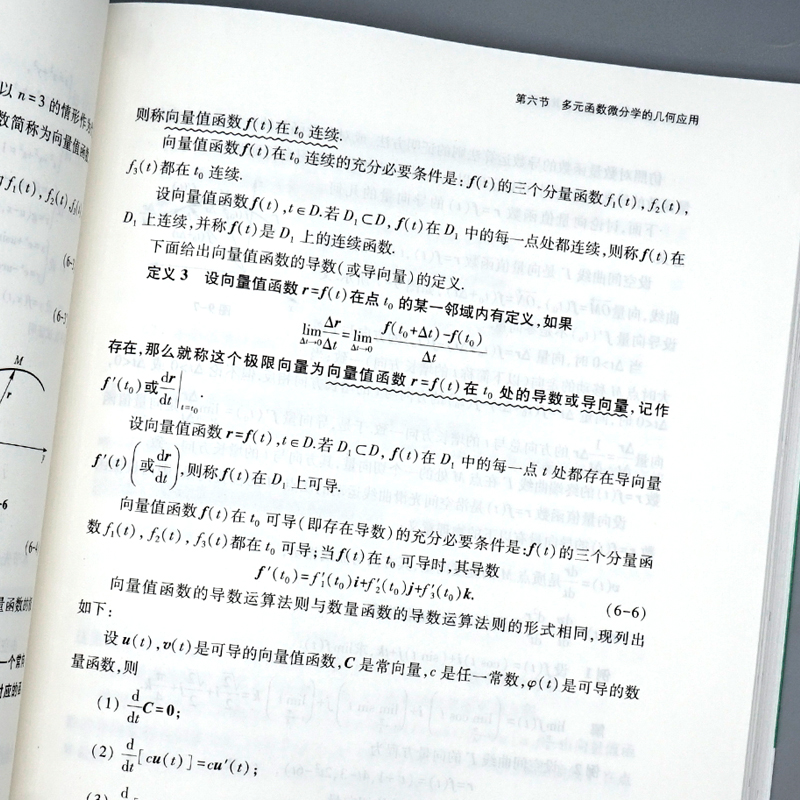 第六节 多元函数微分学的几何应用
则称向量值函数f(t)在t₀连续.
向量值函数f(t)在t₀连续的充分必要条件是:f(t)的三个分量函数f₁(t),f₂(t),
f₃(t)都在t₀连续.
设向量值函数f(t),t∈D.若D₁⊂D,f(t)在D₁中的每一点处都连续,则称f(t)在
D₁上连续,并称f(t)是D₁上的连续函数.
下面给出向量值函数的导数(或导向量)的定义.
定义3 设向量值函数r=f(t)在点t₀的某一邻域内有定义,如果
lim_{Δt→0} Δr/Δt = lim_{Δt→0} (f(t₀+Δt)-f(t₀))/Δt
存在,那么就称这个极限向量为向量值函数r=f(t)在t₀处的导数或导向量,记作
f′(t₀)或dr/dt|_{t=t₀}.
设向量值函数r=f(t),t∈D.若D₁⊂D,f(t)在D₁中的每一点t处都存在导向量
f′(t)(或dr/dt),则称f(t)在D₁上可导.
向量值函数f(t)在t₀可导(即存在导数)的充分必要条件是:f(t)的三个分量函
数f₁(t),f₂(t),f₃(t)都在t₀可导;当f(t)在t₀可导时,其导数
f′(t₀)=f₁′(t₀)i+f₂′(t₀)j+f₃′(t₀)k. (6-6)
向量值函数的导数运算法则与数量函数的导数运算法则的形式相同,现列出
如下:
设u(t),v(t)是可导的向量值函数,C是常向量,c是任一常数,φ(t)是可导的数
量函数,则
(1) d/dt C=0;
(2) d/dt[cu(t)]=cu′(t);
以n=3的情形作为
数简称为向量值函数
f₁(t),f₂(t),f₃(
M
r
-6
量函数的
一个常
对应的